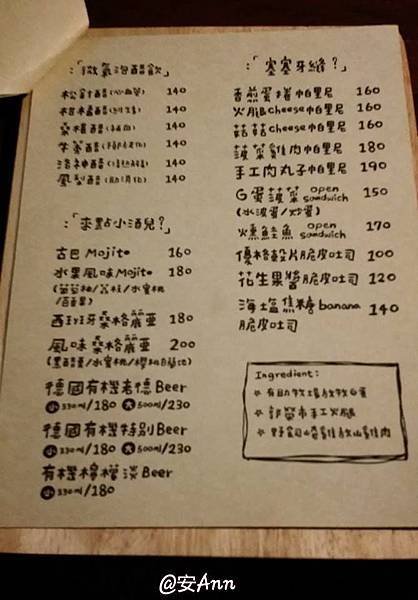 :「微氣泡醋飲」
松針醋(心血管) 140
檸檬醋 140
桑椹醋 140
牛蒡醋 140
洛神醋 140
鳳梨醋(助消化) 140
:「來點小酒兒?」
古巴Mojito 160
水果風味Mojito 180
(葡萄柚/荔枝/水蜜桃
/百香果)
西班牙桑格麗亞 180
風味桑格麗亞 200
德國有機老德Beer
小330ml/180 大500ml/230
德國有機特別Beer
小330ml/180 大500ml/230
有機檸檬淡Beer
小330ml/180
:「塞塞牙縫?」
香煎蛋捲帕里尼 160
火腿Cheese帕里尼 160
菇菇Cheese帕里尼 160
菠菜雞肉帕里尼 180
手工肉丸子帕里尼 190
G蛋菠菜 open sandwich 150
(水波蛋/炒蛋)
燻鮭魚 open sandwich 170
優格穀片脆皮吐司 100
花生果醬脆皮吐司 120
海鹽焦糖banana 140
脆皮吐司
Ingredient:
☆ 有助牧場放牧G蛋
☆ 手工火腿
☆ 放山雞肉
@安Ann